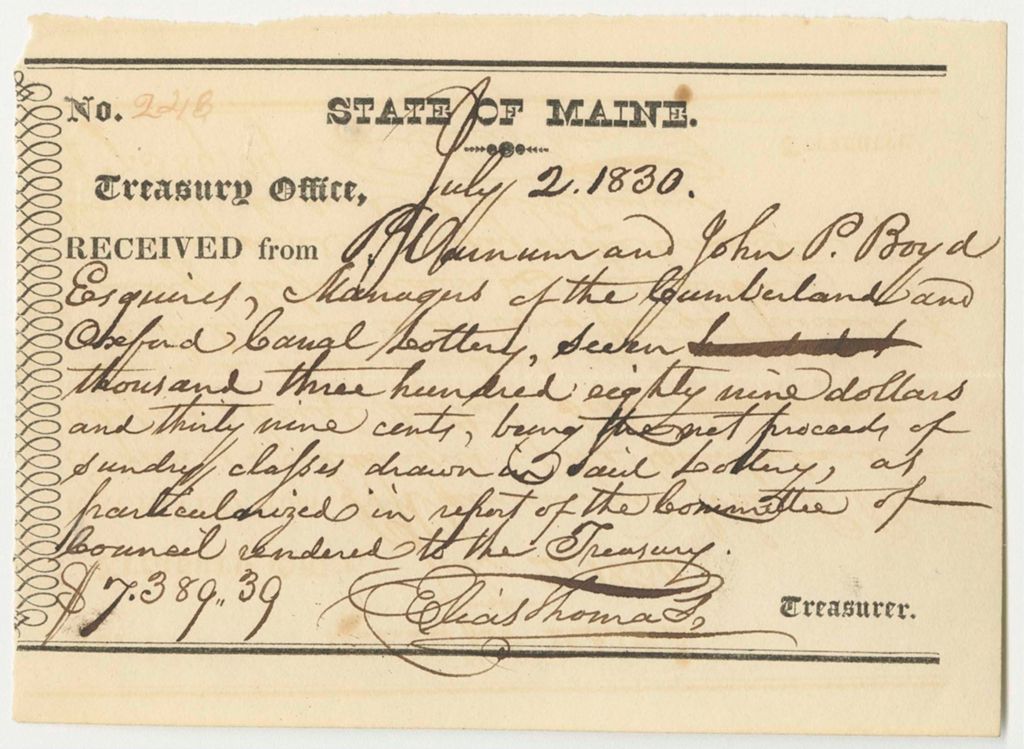 No. 248
STATE OF MAINE.
Treasury Office, July 2. 1830.
RECEIVED from P. Varnum and John P. Boyd
Esquires, Managers of the Cumberland and
Oxford Canal Lottery, seven
thousand three hundred eighty nine dollars
and thirty nine cents, being the net proceeds of
sundry classes drawn in said Lottery, as
particularized in report of the Committee of
Council rendered to the Treasury.
$7.389,,39 Elias Thomas, Treasurer.